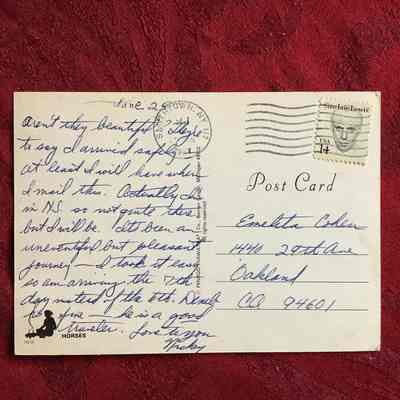 June 25
Aren't they beautiful? Here
to say I arrived safely.
At least I will have when
I mail this. Actually I'm
in N.S. so not quite there
but I will be. It's been an
uneventful but pleasant
journey — I took it easy
so am arriving the 7th
day instead of the 6th.
fine — he is a good
traveler. Love to you
Mickey
HORSES
NY
Sinclair Lewis
USA
1¢
Post Card
Emelita Cohen
1440 29th Ave
Oakland
CA 94601